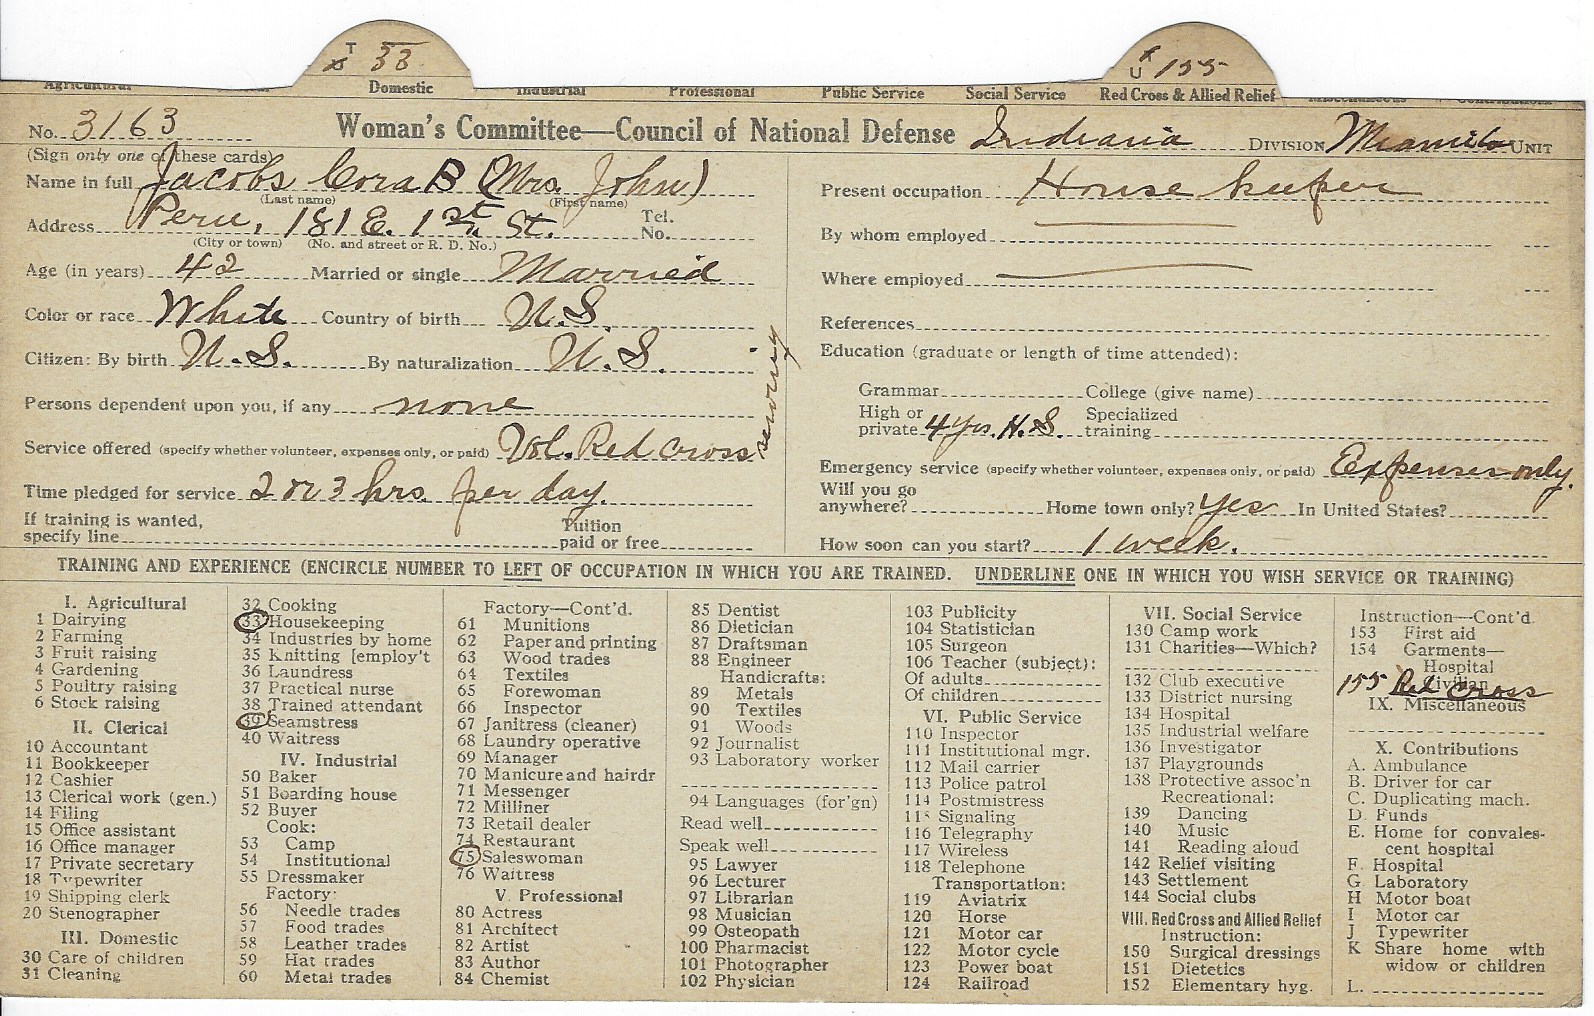 T 33 X U 155
Domestic Industrial Professional Public Service Social Service Red Cross & Allied Relief
No. 3163 Woman's Committee—Council of National Defense Indiana DIVISION Miami UNIT
(Sign only one of these cards)
Name in full Jacobs Cora B (Mrs. John)
(Last name) (First name)
Address Peru, 181 E. 1st St. Tel. No.
(City or town) (No. and street or R. D. No.)
Age (in years) 42 Married or single Married
Color or race White Country of birth U.S.
Citizen: By birth U.S. By naturalization U.S.
Persons dependent upon you, if any none
Service offered (specify whether volunteer, expenses only, or paid) Vol. Red Cross sewing
Time pledged for service 2 or 3 hrs. per day.
If training is wanted, specify line Tuition paid or free
Present occupation House keeper
By whom employed
Where employed
References
Education (graduate or length of time attended):
Grammar College (give name)
High or private 4 yrs. H.S. Specialized training
Emergency service (specify whether volunteer, expenses only, or paid) Expenses only.
Will you go anywhere? Home town only? Yes In United States?
How soon can you start? 1 week.
TRAINING AND EXPERIENCE (ENCIRCLE NUMBER TO LEFT OF OCCUPATION IN WHICH YOU ARE TRAINED. UNDERLINE ONE IN WHICH YOU WISH SERVICE OR TRAINING)
I. Agricultural
1 Dairying
2 Farming
3 Fruit raising
4 Gardening
5 Poultry raising
6 Stock raising
II. Clerical
10 Accountant
11 Bookkeeper
12 Cashier
13 Clerical work (gen.)
14 Filing
15 Office assistant
16 Office manager
17 Private secretary
18 Typewriter
19 Shipping clerk
20 Stenographer
III. Domestic
30 Care of children
31 Cleaning
32 Cooking
33 Housekeeping
34 Industries by home
35 Knitting [employ't
36 Laundress
37 Practical nurse
38 Trained attendant
39 Seamstress
40 Waitress
IV. Industrial
50 Baker
51 Boarding house
52 Buyer
Cook:
53 Camp
54 Institutional
55 Dressmaker
Factory:
56 Needle trades
57 Food trades
58 Leather trades
59 Hat trades
60 Metal trades
Factory—Cont'd.
61 Munitions
62 Paper and printing
63 Wood trades
64 Textiles
65 Forewoman
66 Inspector
67 Janitress (cleaner)
68 Laundry operative
69 Manager
70 Manicure and hairdr
71 Messenger
72 Milliner
73 Retail dealer
74 Restaurant
75 Saleswoman
76 Waitress
V. Professional
80 Actress
81 Architect
82 Artist
83 Author
84 Chemist
85 Dentist
86 Dietician
87 Draftsman
88 Engineer
Handicrafts:
89 Metals
90 Textiles
91 Woods
92 Journalist
93 Laboratory worker
94 Languages (for'gn)
Read well
Speak well
95 Lawyer
96 Lecturer
97 Librarian
98 Musician
99 Osteopath
100 Pharmacist
101 Photographer
102 Physician
103 Publicity
104 Statistician
105 Surgeon
106 Teacher (subject):
Of adults
Of children
VI. Public Service
110 Inspector
111 Institutional mgr.
112 Mail carrier
113 Police patrol
114 Postmistress
115 Signaling
116 Telegraphy
117 Wireless
118 Telephone
Transportation:
119 Aviatrix
120 Horse
121 Motor car
122 Motor cycle
123 Power boat
124 Railroad
VII. Social Service
130 Camp work
131 Charities—Which?
132 Club executive
133 District nursing
134 Hospital
135 Industrial welfare
136 Investigator
137 Playgrounds
138 Protective assoc'n
Recreational:
139 Dancing
140 Music
141 Reading aloud
142 Relief visiting
143 Settlement
144 Social clubs
VIII. Red Cross and Allied Relief
Instruction:
150 Surgical dressings
151 Dietetics
152 Elementary hyg.
Instruction—Cont'd.
153 First aid
154 Garments—
Hospital
Civilian
155 Red Cross
IX. Miscellaneous
X. Contributions
A. Ambulance
B. Driver for car
C. Duplicating mach.
D. Funds
E. Home for convales-
cent hospital
F. Hospital
G. Laboratory
H Motor boat
I Motor car
J Typewriter
K Share home with
widow or children
L.